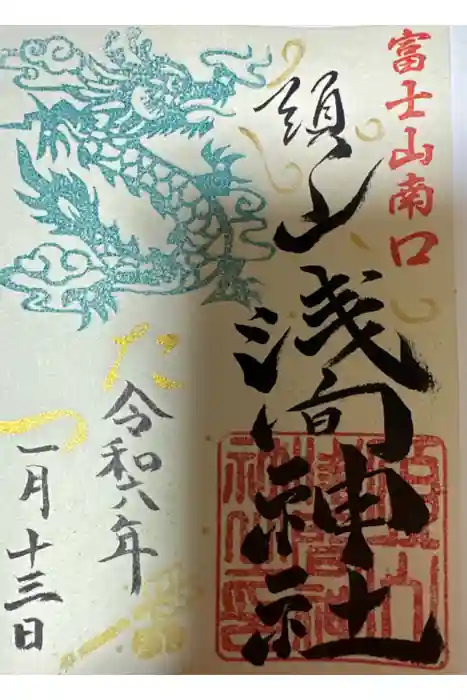 富士山南口
須山浅間神社
たつ
令和六年
一月十三日